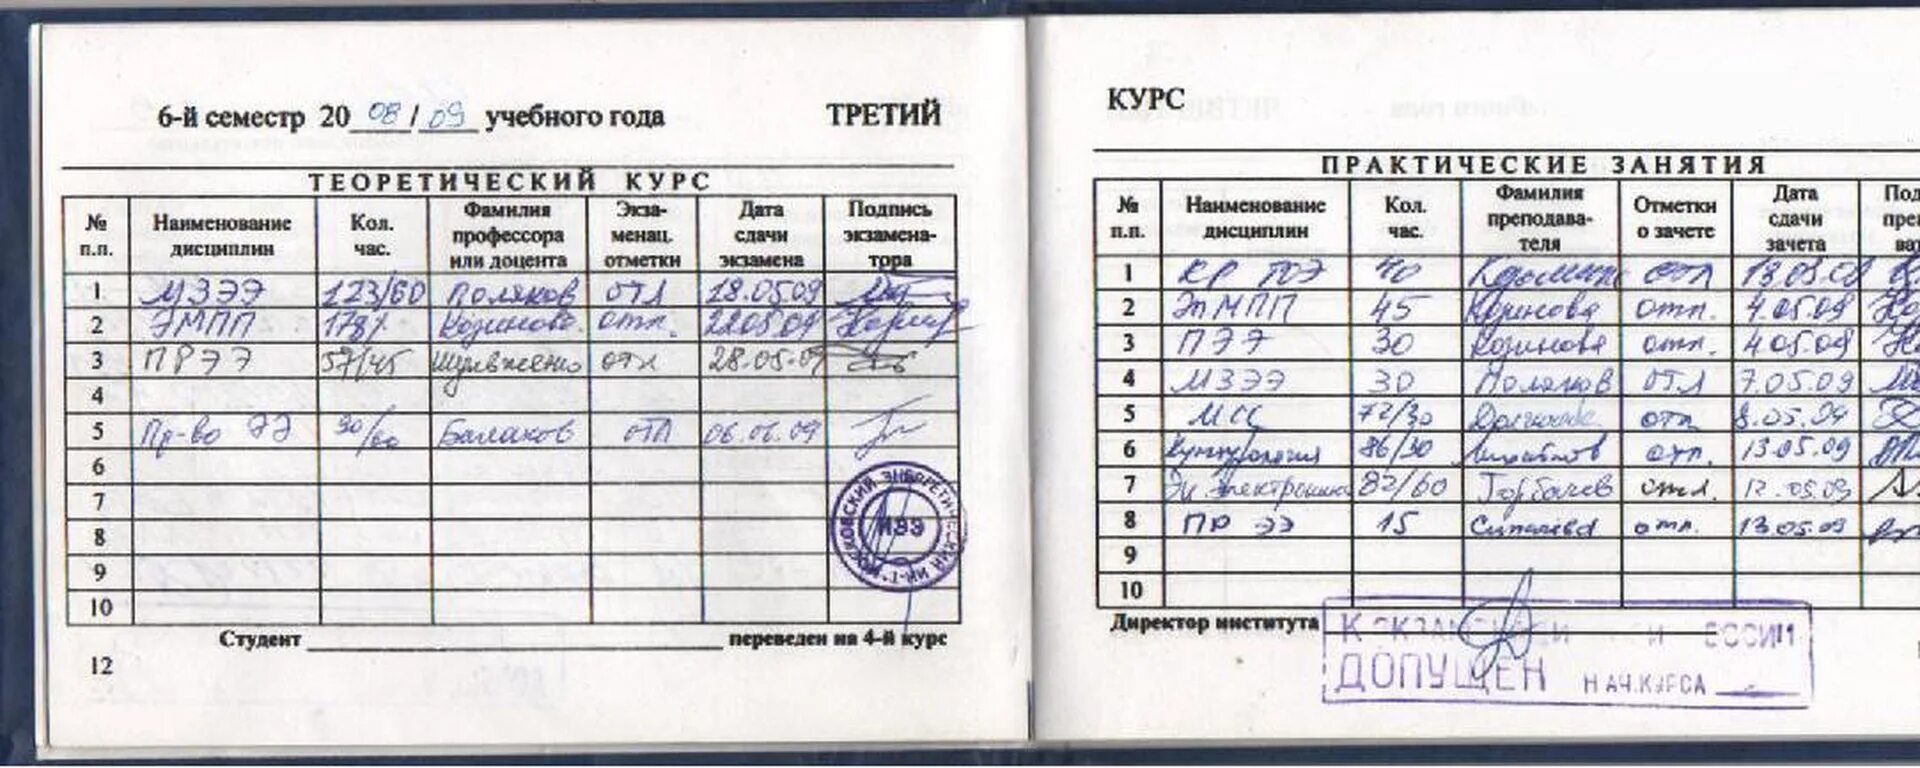 6-й семестр 2008/09 учебного года ТРЕТИЙ
ТЕОРЕТИЧЕСКИЙ КУРС
№ п.п. Наименование дисциплин Кол. час. Фамилия профессора или доцента Экза-менац. отметки Дата сдачи экзамена Подпись экзамена-тора
1 МЗЭЭ 123/60 Поляков ОТЛ 18.05.09
2 ЭМПП Козинова отл. 22.05.09
3 ПРЭЭ 57/45 отл 28.05.09
4
5 Пр-во ЭЭ 90/60 Балаков ОТЛ 06.06.09
6
7
8
9
10
МОСКОВСКИЙ ЭНЕРГЕТИЧЕСКИЙ ИН-Т
ИЭЭ
Студент переведен на 4-й курс
12
КУРС
ПРАКТИЧЕСКИЕ ЗАНЯТИЯ
№ п.п. Наименование дисциплин Кол. час. Фамилия преподава-теля Отметки о зачете Дата сдачи зачета
1 КР ТОЭ 40 отл
2 ЭМПП 45 Козинова отл. 4.05.09
3 ПЭЭ 30 Козинова отл. 4.05.09
4 МЗЭЭ 30 Поляков ОТЛ 7.05.09
5 МСС 72/30 отл 8.05.09
6 Культурология 86/30 отл. 13.05.09
7 Эл. электроника 82/60 Горбачев отл. 12.05.09
8 ПР ЭЭ 15 отл. 13.05.09
9
10
Директор института
К ЭКЗАМЕНАЦИОННОЙ СЕССИИ
ДОПУЩЕН НАЧ.КУРСА